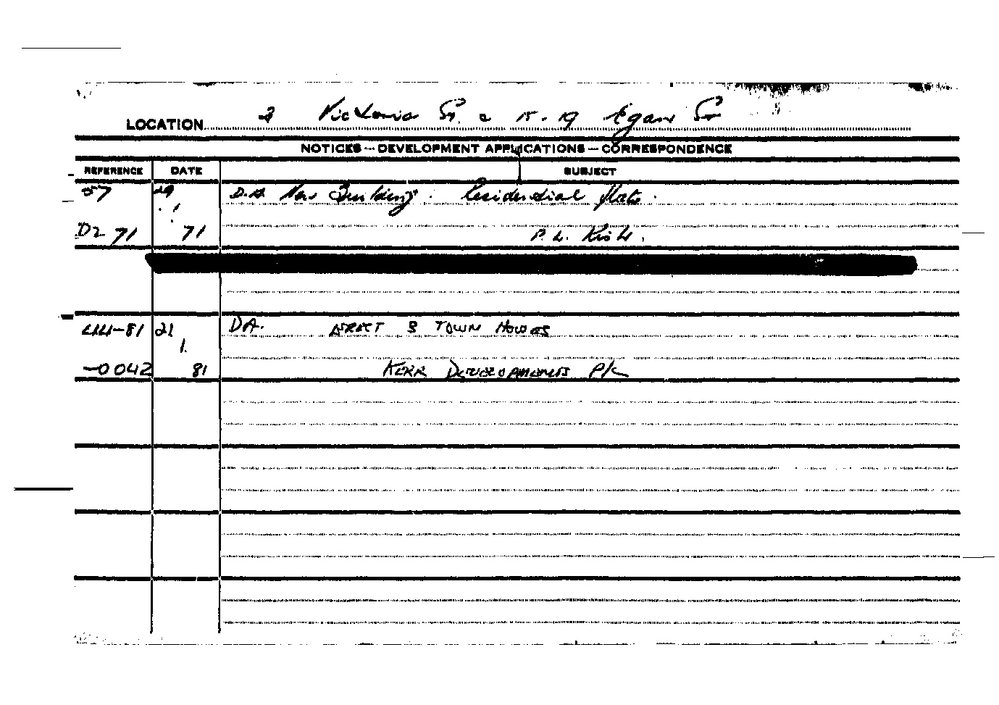 LOCATION 2 Victoria St. & 15-19 Egan St
NOTICES — DEVELOPMENT APPLICATIONS — CORRESPONDENCE
REFERENCE DATE SUBJECT
57 29 D.A. New Building. Residential flats.
1
D2 71 71 P. L.
81 21 DA. ERECT 3 TOWN HOUSES
1.
-0042 81 KERR DEVELOPMENTS P/L